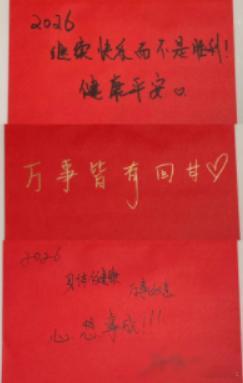 2026
继续快乐而不是胜利!
健康平安
万事皆有回甘♡
2026
身体健康 万事如意
心想事成!!!